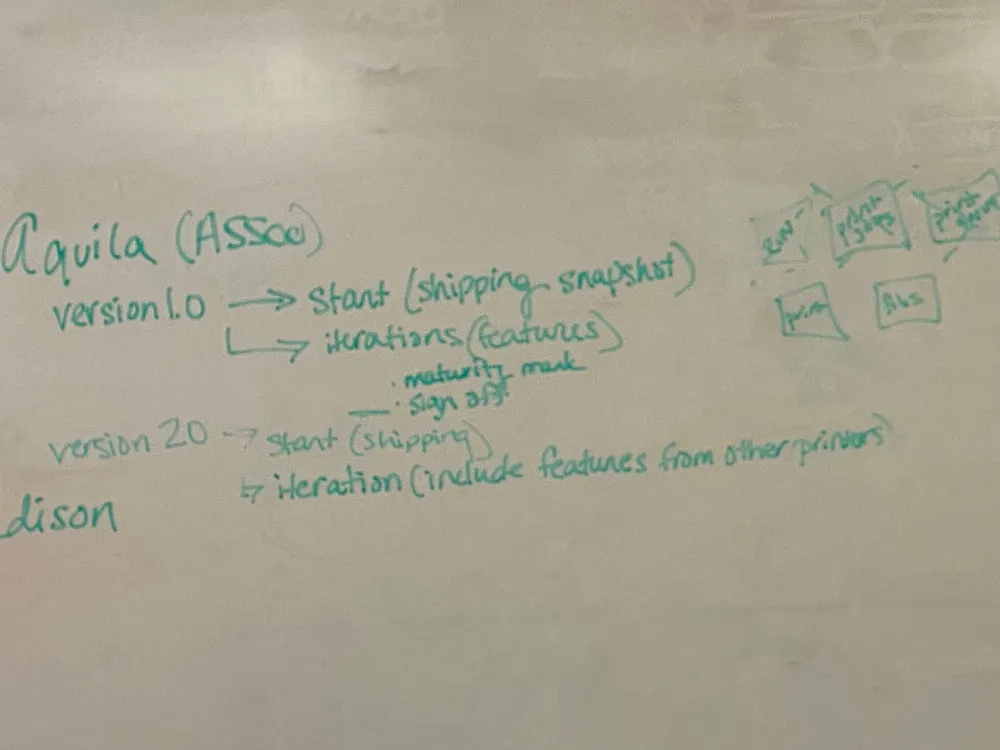 Aquila (ASSOO)
version 1.0 → Start (shipping snapshot)
↳ iterations (features)
· maturity mark
· sign off
version 2.0 → Start (shipping)
↳ iteration (include features from other printers)
dison
print